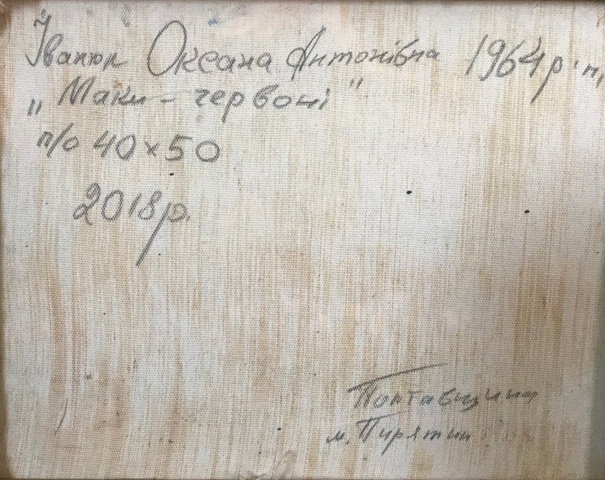 Іванюк Оксана Антонівна 1964 р. н.
„Маки - червоні"
п/о 40×50
2018р.
Полтавщина
м. Пирятин